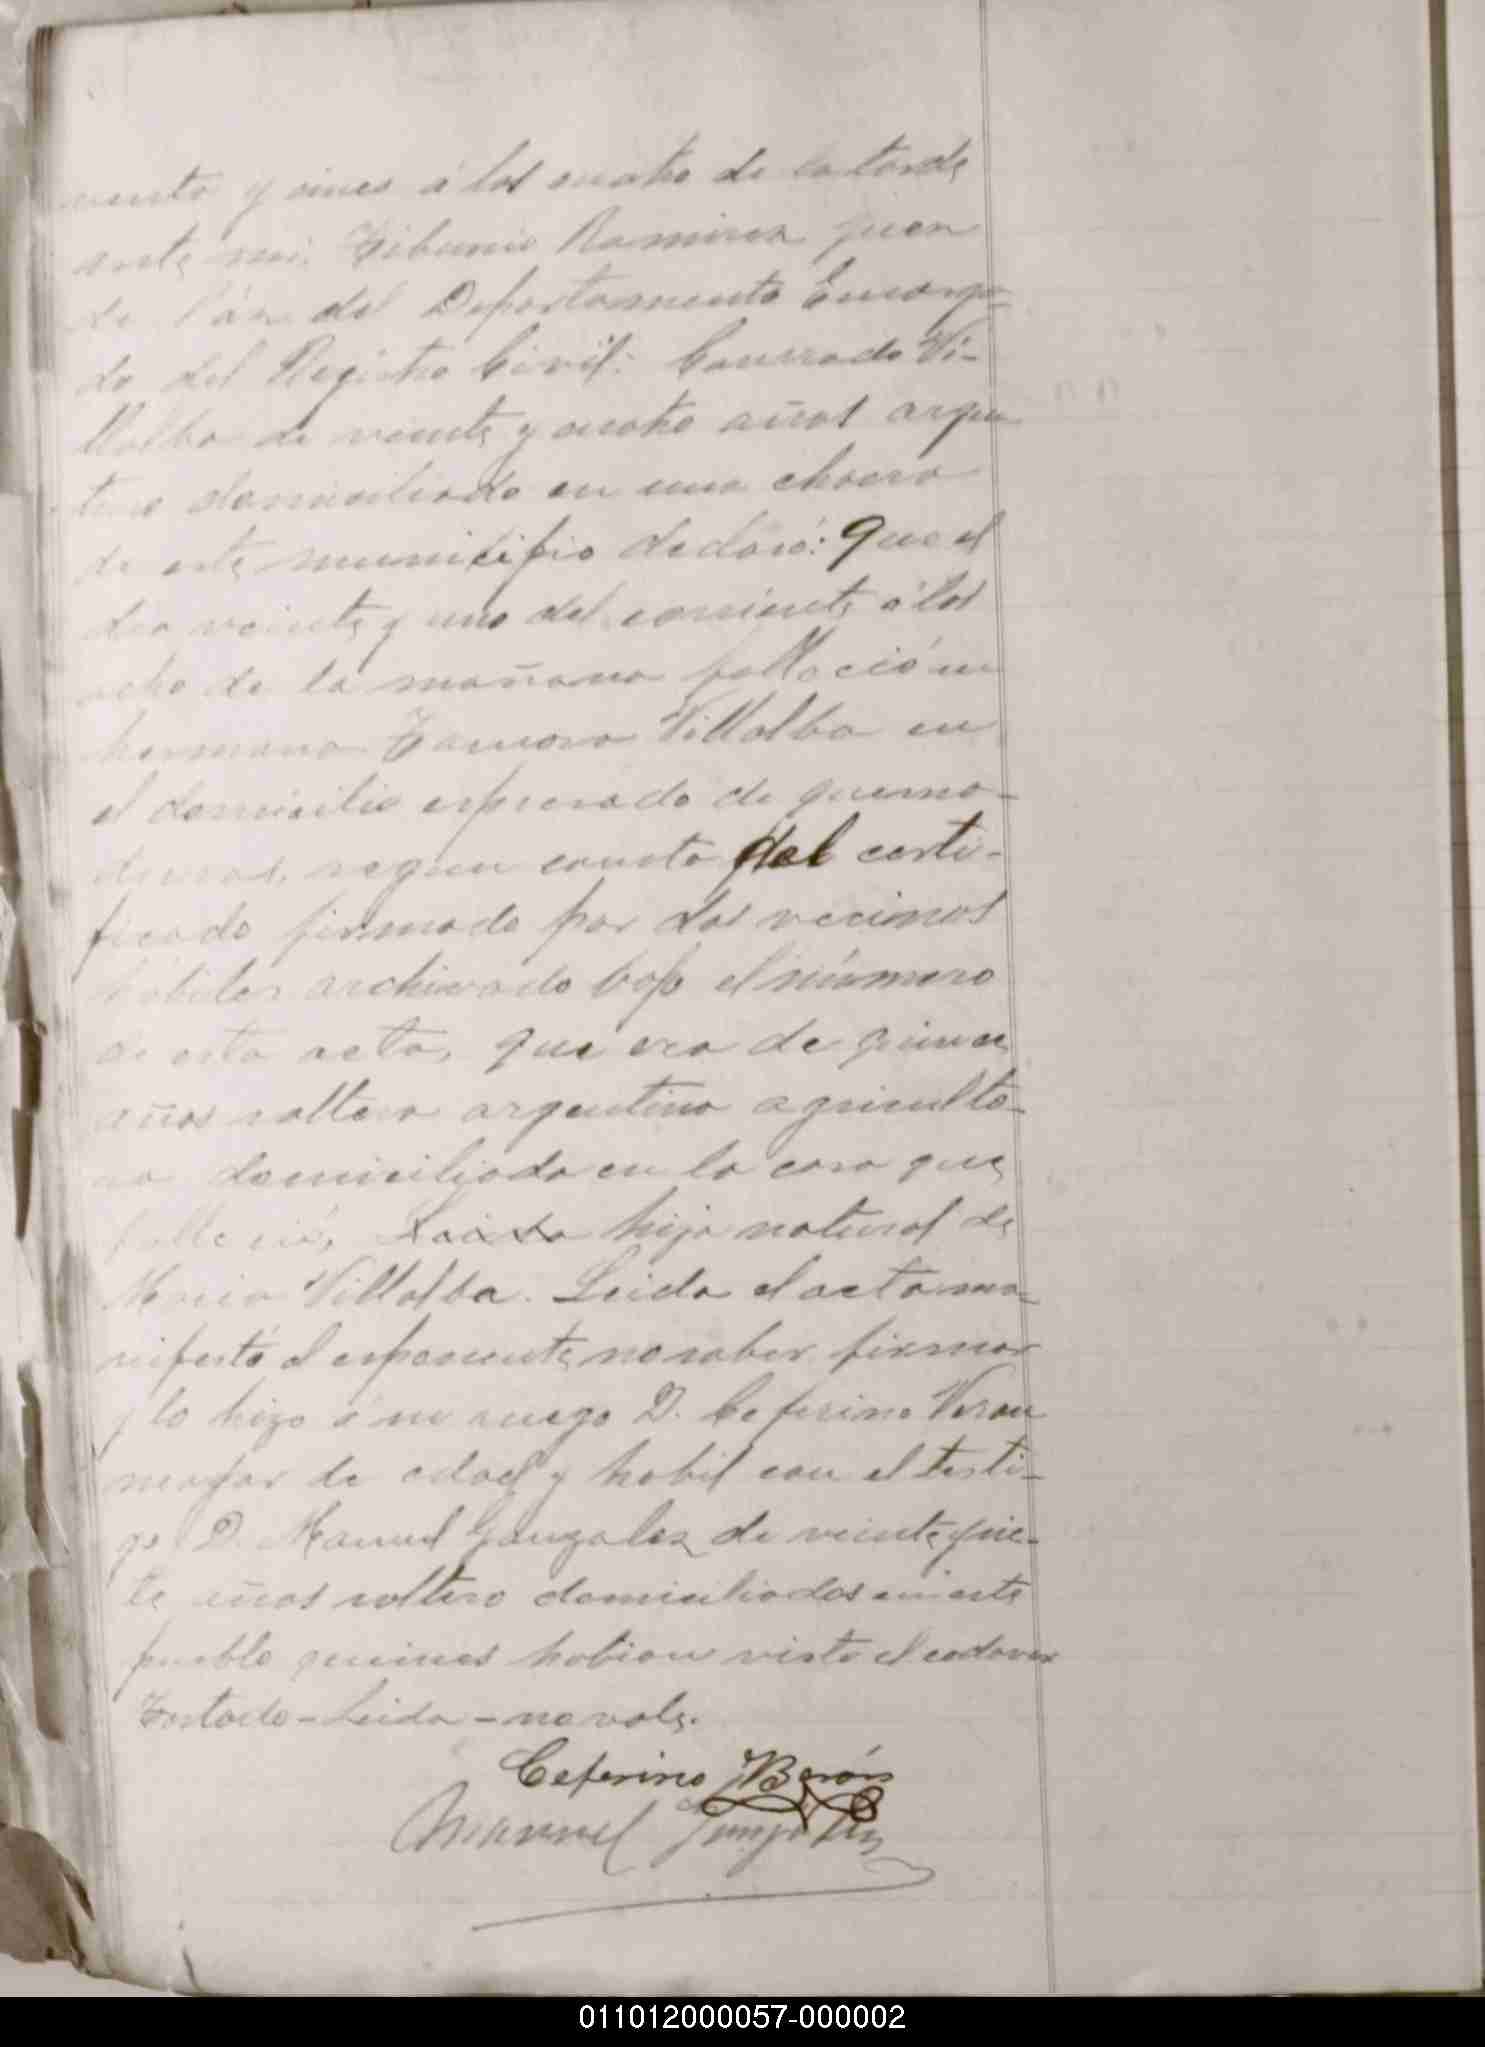 venta y cinco á las cuatro de la tarde
ante mi: Tiburcio Ramirez juez
de Páz del Departamento Encarga-
do del Registro Civil: Conrrado Vi-
llalba de veinte y cuatro años argen
tino domiciliado en una chacra
de este municipio declaró: Que el
dia veinte y uno del corriente á las
ocho de la mañana falleció su
hermana Villalba en
el domicilio espresado de quema-
duras, segun consta del certi-
ficado firmado por dos vecinos
hábiles archivado bajo el número
de esta acta, que era de quince
años soltera argentina agriculto-
ra domiciliada en la casa que
falleció, Leida hija natural de
Maria Villalba. Leida el acta ma-
nifestó el esponente no saber firmar
y lo hizo á su ruego D. Ceferino Veron
mayor de edad y habil con el testi-
go D. Manuel Gonzalez de veinte y sie-
te años soltero domiciliados en este
pueblo quienes habian visto el cadaver
Testado - Leida - no vale.
Ceferino Berón
Manuel Gonzalez
011012000057-000002